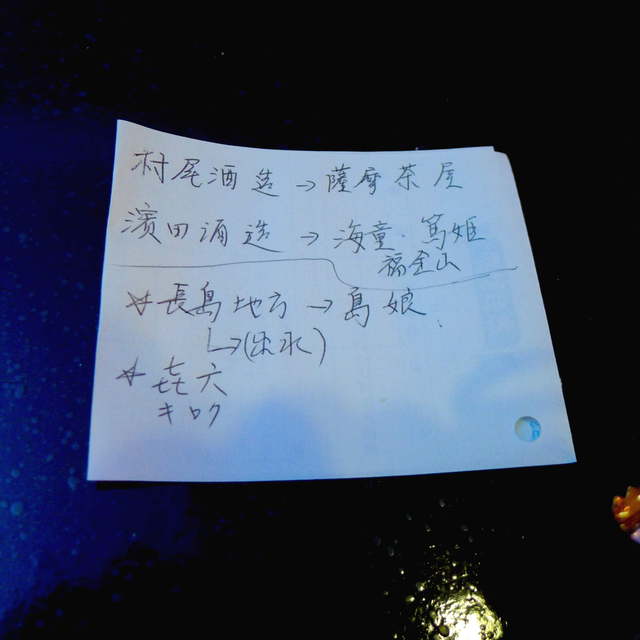 村尾酒造→薩摩茶屋
濱田酒造→海童・篤姫
福金山
☆長島地方→島娘
↳(出水)
☆㐂六
キロク